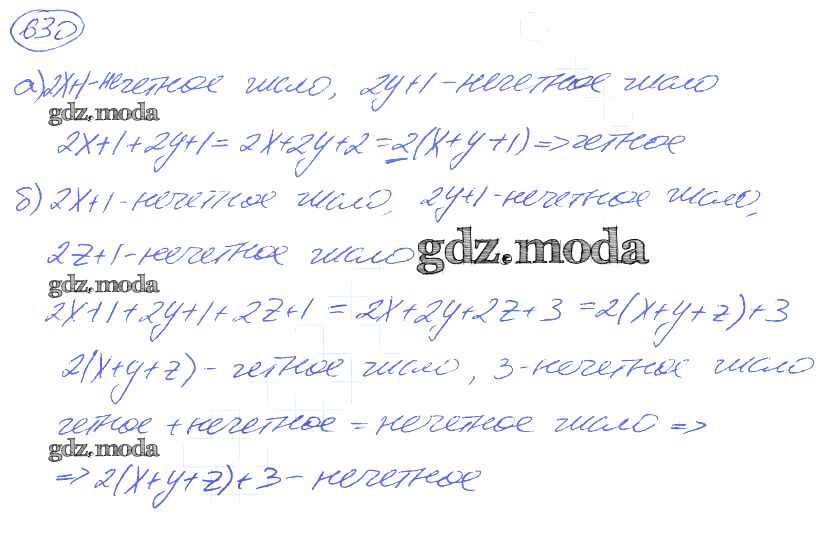 630
а) 2x+1-нечетное число, 2y+1-нечетное число
gdz.moda
2x+1+2y+1= 2x+2y+2=2(x+y+1)=>четное
б) 2x+1-нечетное число, 2y+1-нечетное число,
2z+1-нечетное число
gdz.moda
gdz.moda
2x+1+2y+1+2z+1 = 2x+2y+2z+3 =2(x+y+z)+3
2(x+y+z)- четное число, 3-нечетное число
четное +нечетное = нечетное число =>
gdz.moda
=> 2(x+y+z)+3- нечетное